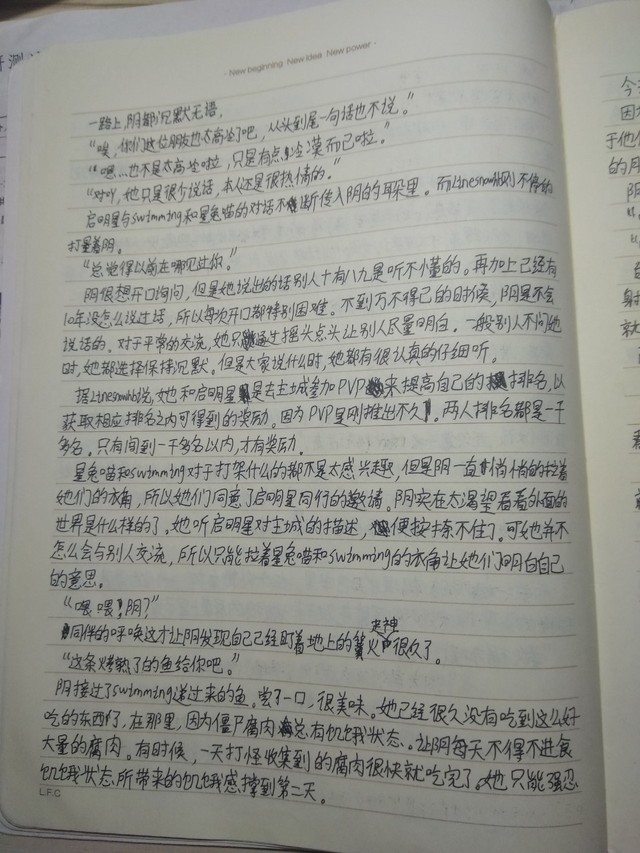 · New beginning New Idea New power ·
一路上,阴都沉默无语,
“唉,你们这位朋友也太高冷了吧,从头到尾一句话也不说。”
“嗯…也不是太高冷啦,只是有点冷漠而已啦。”
“对吖,她只是很少说话,本人还是很热情的。”
启明星与swimming和星兔喵的对话不断传入阴的耳朵里。而则不停的
打量着阴。
“总觉得以前在哪见过你。”
阴很想开口询问,但是她说出的话别人十有八九是听不懂的。再加上已经有
10年没怎么说过话,所以每次开口都特别困难。不到万不得已的时候,阴是不会
说话的。对于平常的交流,她只通过摇头点头让别人尽量明白。一般别人不问她
时,她都选择保持沉默。但是大家说什么时,她都有很认真的仔细听。
据说,她和启明星是去主城参加PVP来提高自己的排名,以
获取相应排名之内可得到的奖励。因为PVP是刚推出不久,两人排名都是一千
多名。只有间到一千多名以内,才有奖励。
星兔喵和swimming对于打架什么的都不是太感兴趣,但是阴一直悄悄的拉着
她们的衣角,所以她们同意了启明星同行的邀请。阴实在太渴望看看外面的
世界是什么样的了。她听启明星对主城的描述,便按捺不住了。可她并不
怎么会与别人交流,所以只能拉着星兔喵和swimming的衣角让她们明白自己
的意思。
“喂喂!阴?”
同伴的呼唤这才让阴发现自己已经盯着地上的篝火失神很久了。
“这条烤熟了的鱼给你吧。”
阴接过了swimming递过来的鱼。尝了一口,很美味。她已经很久没有吃到这么好
吃的东西了,在那里,因为僵尸腐肉总有饥饿状态。让阴每天不得不进食
大量的腐肉。有时候,一天打怪收集到的腐肉很快就吃完了。她只能强忍
饥饿状态所带来的饥饿感撑到第二天。
L.F.C
今
因
于他
的月
阴
射
就